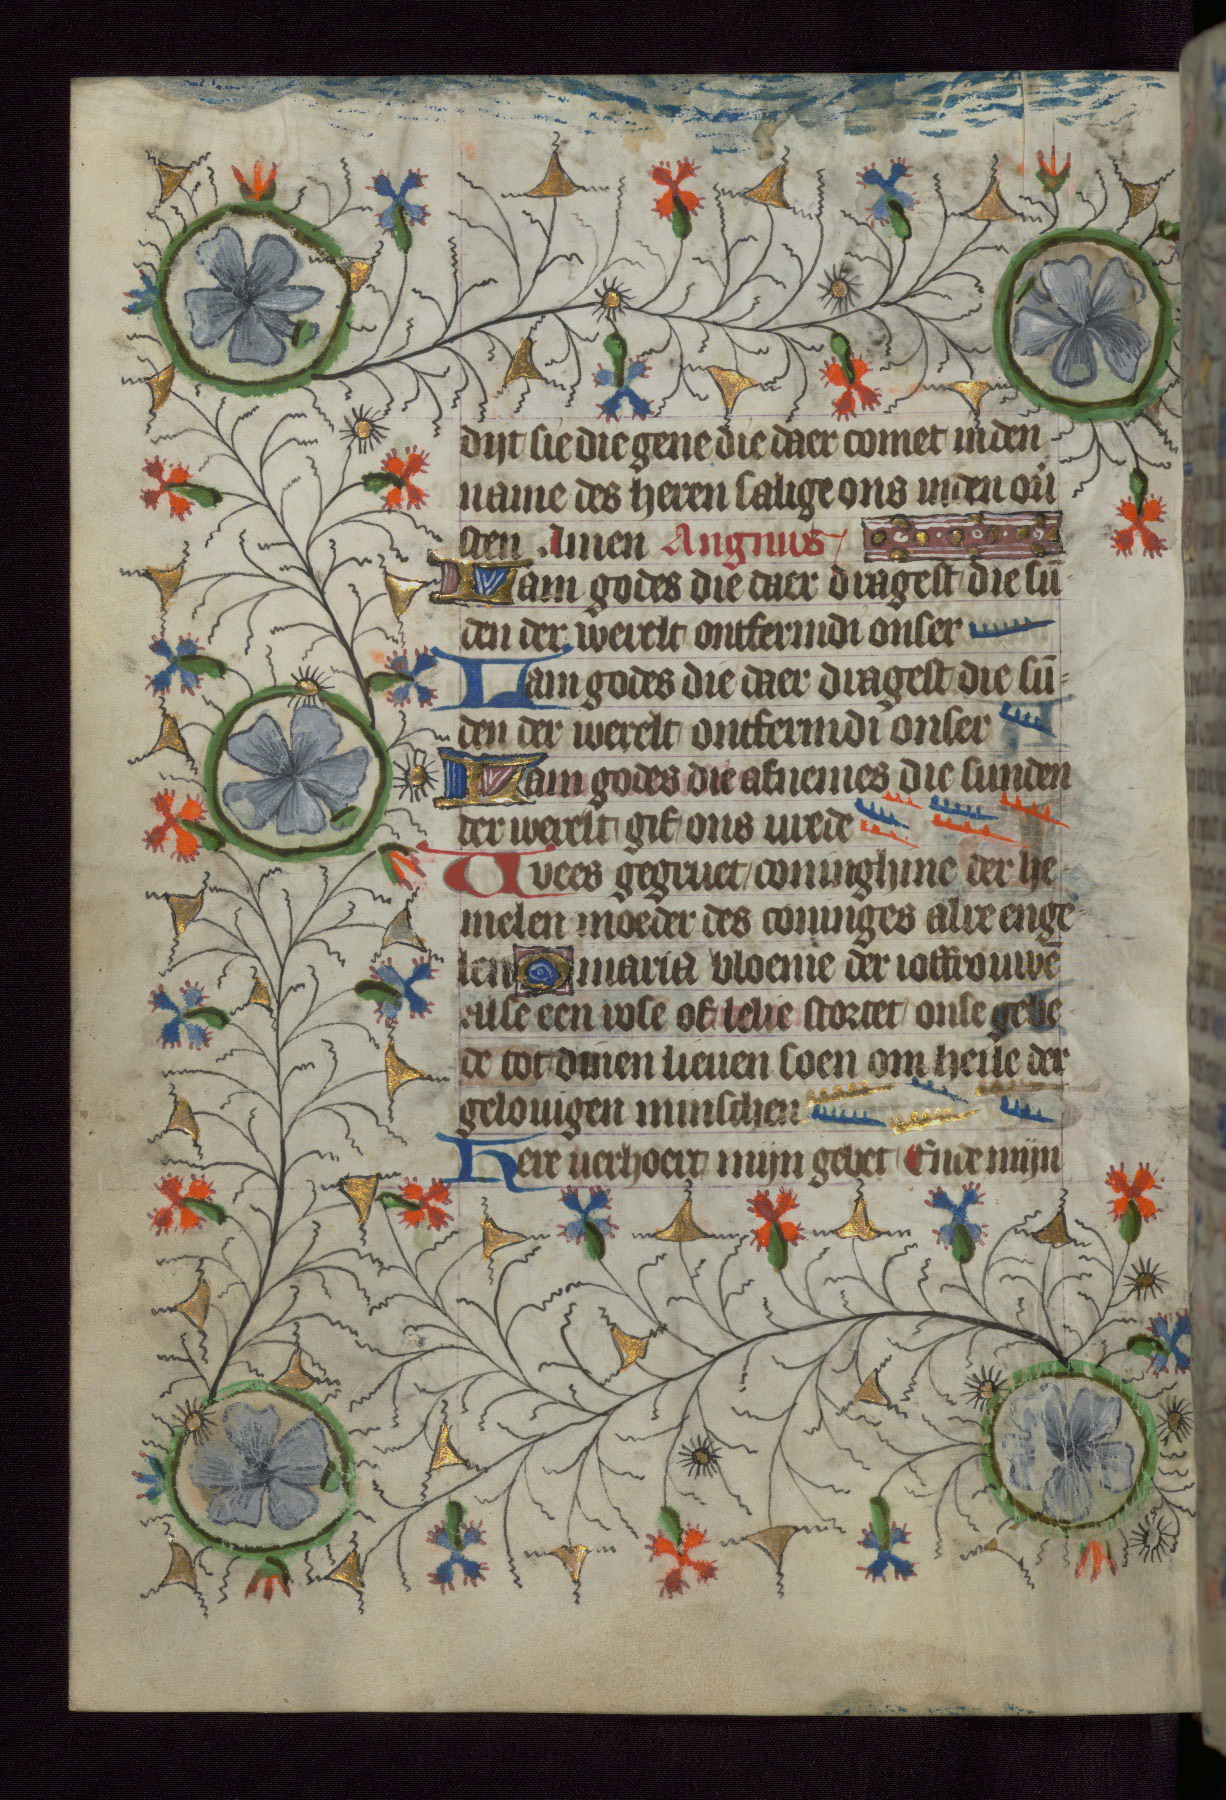 dijt sie die gene die daer comet inden
name des heren salige ons inden ou̅
sten Amen Angnus
Lam godes die daer dragest die su̅
den der werelt ontfermdi onser
Lam godes die daer dragest die su̅
den der werelt ontfermdi onser
Lam godes die afnemes die sunden
der werelt gif ons vrede
Uvees gegruet coninghinc der he
melen moeder des coninges alre enge
len O maria bloeme der ioffrouwe̅
alse een rose of lelie stortet onse gebe
de tot dinen lieuen soen om heile der
gelouigen minschen
Here verhoert mijn gebet Ende mijn